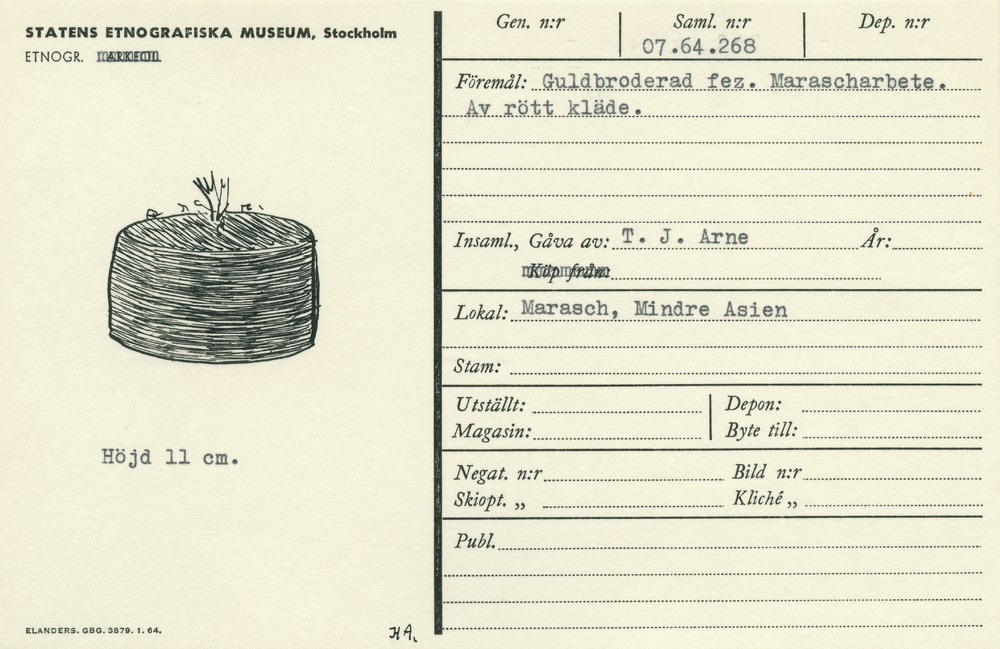 STATENS ETNOGRAFISKA MUSEUM, Stockholm
ETNOGR. ARKEOL.
Höjd 11 cm.
ELANDERS. GBG. 3879. 1. 64.
HA.
Gen. n:r Saml. n:r Dep. n:r
07.64.268
Föremål: Guldbroderad fez. Marascharbete.
Av rött kläde.
Insaml., Gåva av: T. J. Arne År:
Köp från:
Lokal: Marasch, Mindre Asien
Stam:
Utställt: Depon:
Magasin: Byte till:
Negat. n:r Bild n:r
Skiopt. „ Kliché „
Publ.